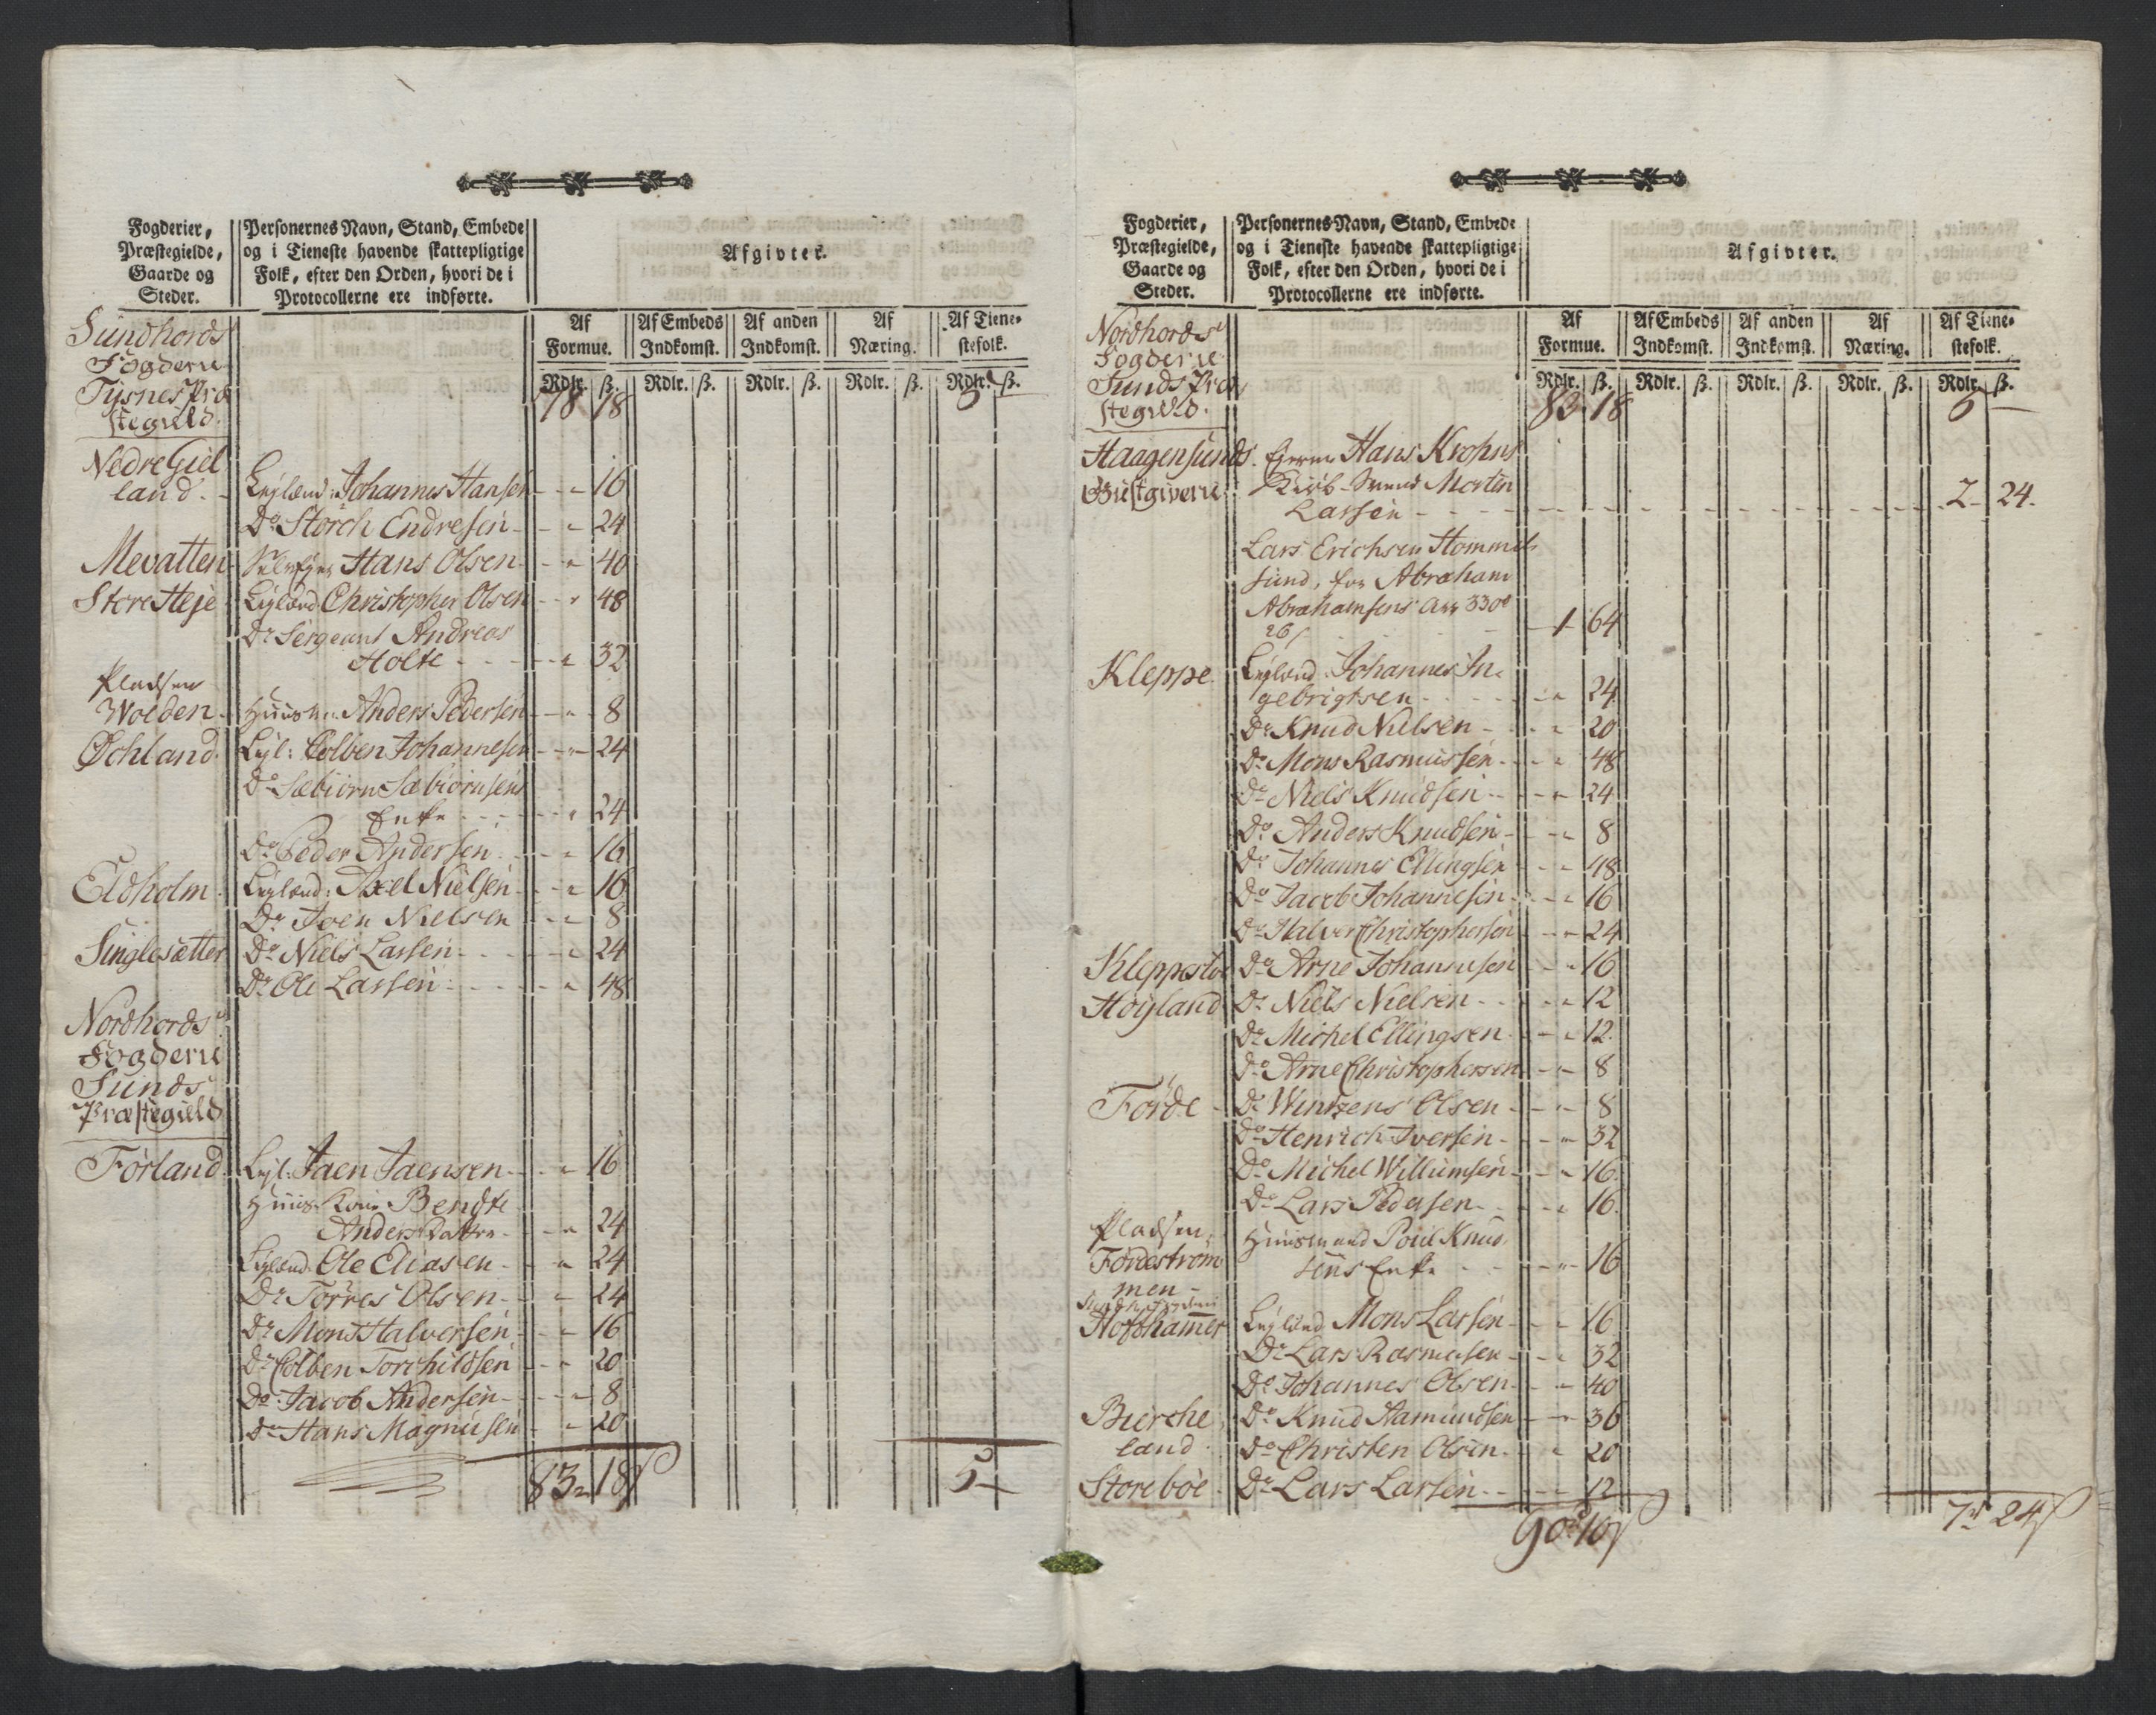 Fogderier, Præstegielde, Gaarde og Steder.
Personernes Navn, Stand, Embede og i Tieneste havende skattepligtige Folk, efter den Orden, hvori de i Protocollerne ere indførte.
Afgivter.
Af Formue. Af Embeds Indkomst. Af anden Indkomst. Af Næring. Af Tienestefolk.
Rdlr. ß. Rdlr. ß. Rdlr. ß. Rdlr. ß. Rdlr. ß.
Sundhords
Fogderie
Tysnes Præ
stegield. 78 18 5 —
Nedre Giel
land - Leylænd: Johannes Hansen - 16
Do Storch Endresen - 24
Mevatten Hans Olsen - 40
Store Heje Leylænd Christopher Olsen - 48
Do Sergeant Andreas
Holte - 32
Pladsen
Wolden - Huusm. Anders Pedersen - 8
Øchland Leyl: Colben Johannesen - 24
Do Sæbiørn Sæbiørnsens
Enke - 24
Do Peder Andersen - 16
Eldholm Leylænd: Axel Nielsen - 16
Do Joen Nielsen - 8
Singlesætter Do Niels Larsen - 24
Do Ole Larsen - 48
Nordhords
Fogderie
Sunds
Præstegield
Førland Leyl: Jaen Jaensen - 16
Huus Kone Bendte
Anders Datter - 24
Leylænd Ole Eliasen - 24
Do Torres Olsen - 24
Do Mons Halversen - 16
Do Colben Torchildsen - 20
Do Jacob Andersen - 8
Do Hans Magnusen - 20
83 - 18ß 5 —
Fogderier, Præstegielde, Gaarde og Steder.
Personernes Navn, Stand, Embede og i Tieneste havende skattepligtige Folk, efter den Orden, hvori de i Protocollerne ere indførte.
Afgivter.
Af Formue. Af Embeds Indkomst. Af anden Indkomst. Af Næring. Af Tienestefolk.
Rdlr. ß. Rdlr. ß. Rdlr. ß. Rdlr. ß. Rdlr. ß.
Nordhords
Fogderie
Sunds Præ
stegield. 83 18 5 —
Haagensunds Hans Krohns
Giestgiverie Svend Morten
Larsen - 2 - 24.
Lars Erichsen Hommel
sund, for Abraham
Abrahamsens Arv 330
26ß - 1 - 64
Kleppe Leylænd Johannes In
gebrigtsen - 24
Do Knud Nielsen - 20
Do Mons Rasmussen - 48
Do Niels Knudsen - 24
Do Anders Knudsen - 8
Do Johannes Ellingsen - 48
Do Jacob Johannesen - 16
Do Halver Christophersen - 24
Kleppestø Do Arne Johannesen - 16
Høyland Do Niels Nielsen - 12
Do Michel Ellingsen - 12.
Do Arne Christophersen - 8
Førde - Do Wintzens Olsen - 8
Do Henrich Iversen - 32
Do Michel Willumsen - 16.
Do Lars Pedersen - 16.
Pladsen
Førdestrøm
men - Huusmand Poul Knud
sens Enke - 16
Hofshamer Leylænd Mons Larsen - 16
Do Lars Rasmusen - 32
Do Johannes Olsen - 40
Bierche
land - Do Knud Aamundsen - 36
Do Christen Olsen - 20
Storebøe Do Lars Larsen - 12
90 10ß 7 24ß